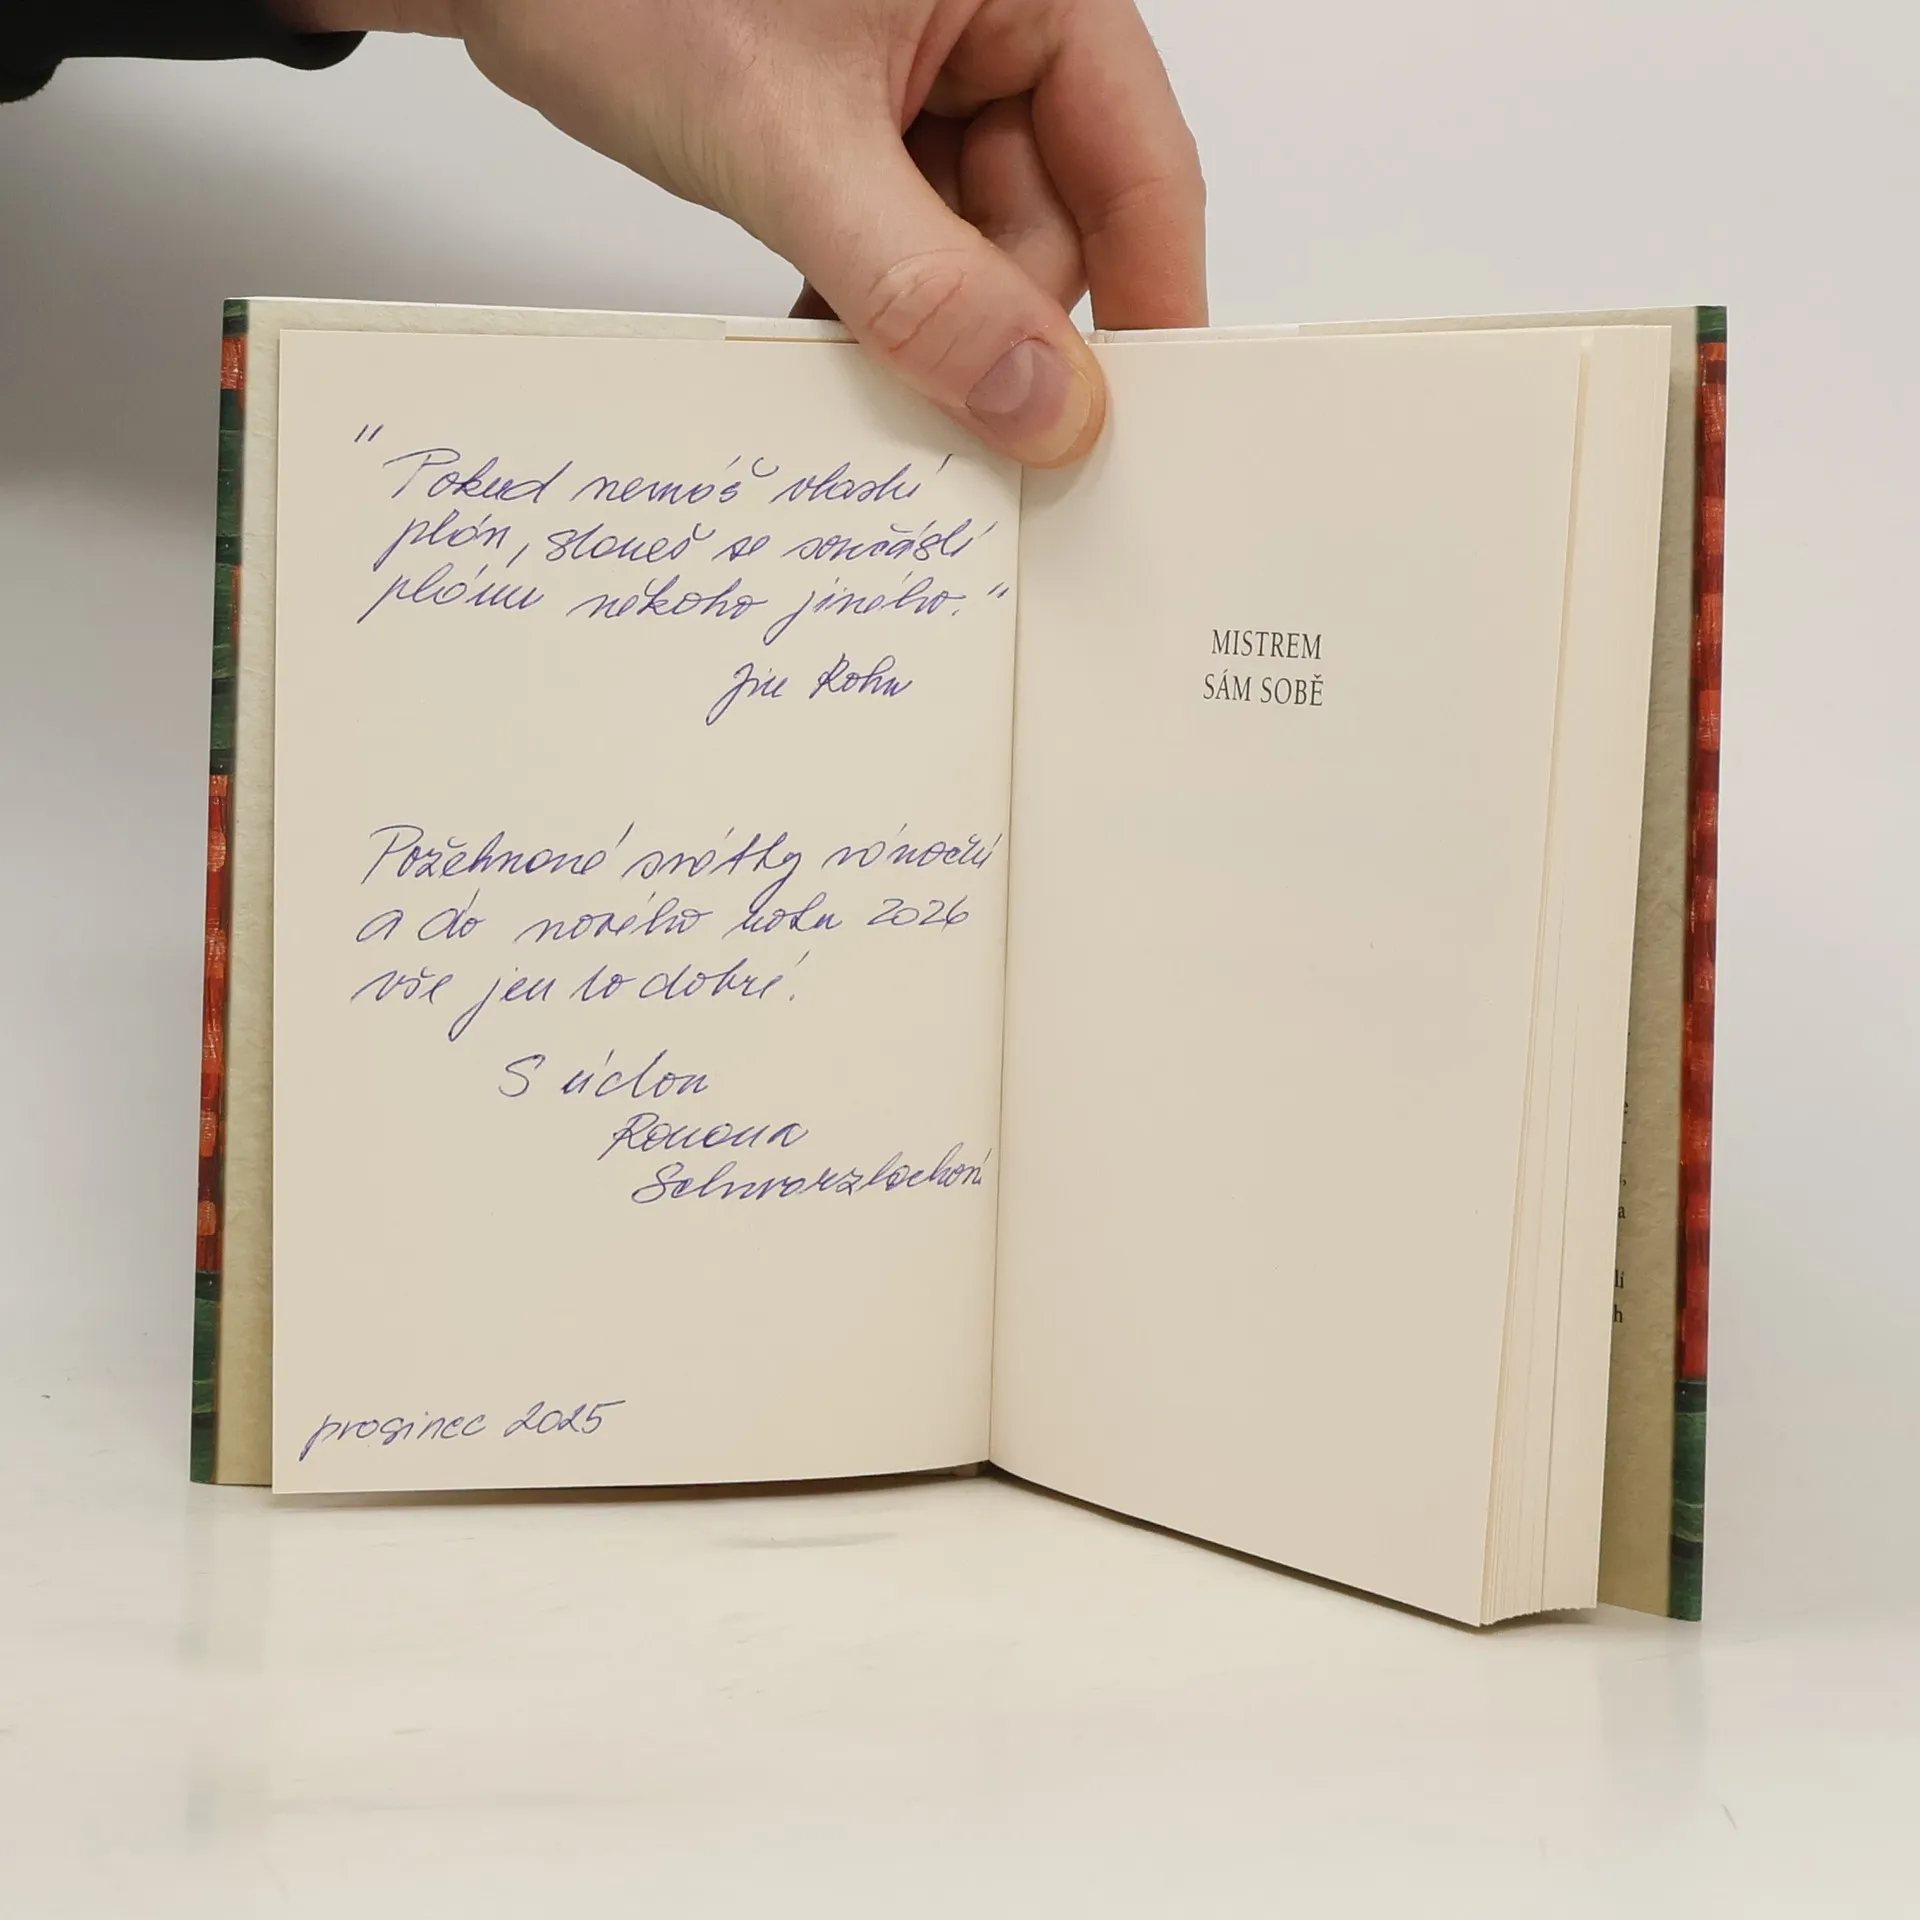 "Pokud nemáš vlastní
plán, staneš se součástí
plánu někoho jiného."
Jim Rohn
Požehnané svátky vánoční
a do nového roku 2026
vše jen to dobré.
S úctou
Romana
prosinec 2025
MISTREM
SÁM SOBĚ